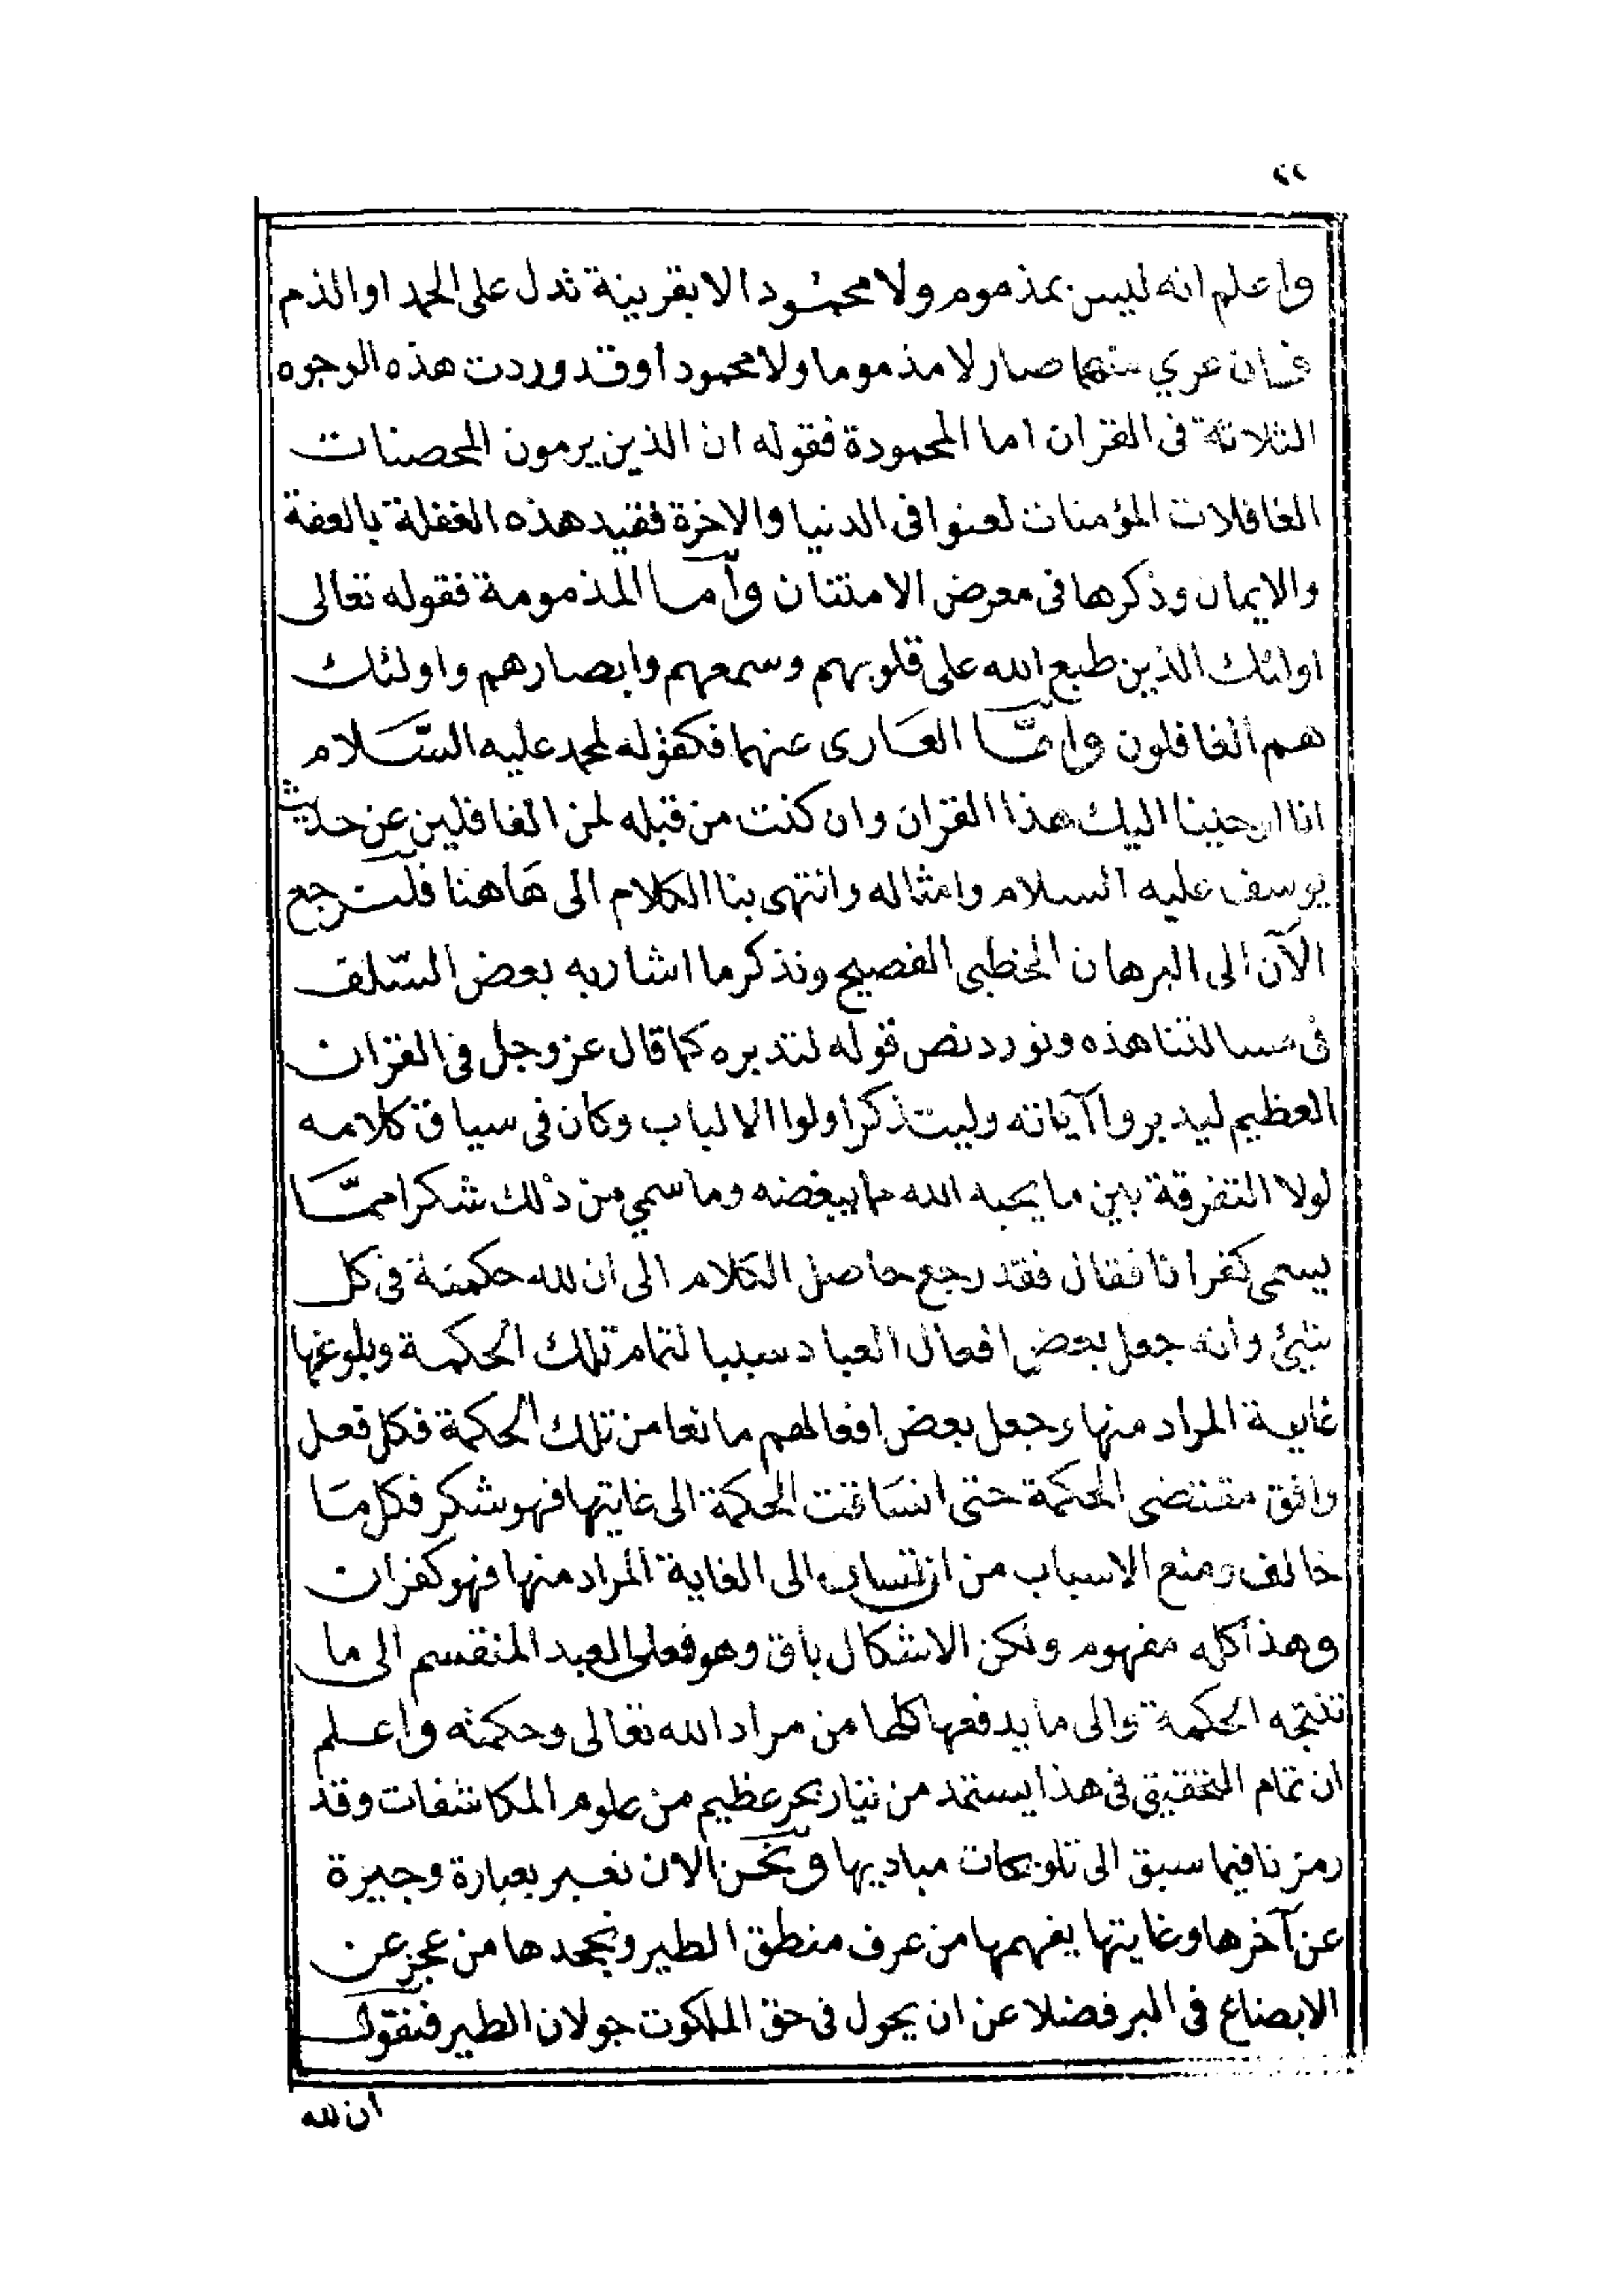 ٢٢
واعلم انه ليس بمذموم ولا محمود الا بقرينة تدل على الحمد او الذم
فان عري منهما صار لا مذموما ولا محمودا وقد وردت هذه الوجوه
الثلاثة فى القران اما المحمودة فقوله ان الذين يرمون المحصنات
الغافلات المؤمنات لعنوا فى الدنيا والاخرة فقيد هذه الغفلة بالعفة
والايمان وذكرها فى معرض الامتنان وأما المذمومة فقوله تعالى
اولئك الذين طبع الله على قلوبهم وسمعهم وابصارهم واولئك
هم الغافلون وامّا العَارى عنهما فكقوله لمحمد عليه السَّلام
انا اوحينا اليك هذا القران وان كنت من قبله لمن الغافلين عن حديث
يوسف عليه السلام وامثاله وانتهى بنا الكلام الى هَاهنا فلنرجع
الآن الى البرهان الخطبى الفصيح ونذكر ما اشار به بعض السّلف
فى مسالتنا هذه ونورد نص قوله لتدبره كما قال عز وجل فى القران
العظيم ليدبروا آياته وليتذكر اولوا الالباب وكان فى سياق كلامه
لولا التفرقة بين ما يحبه الله مما يبغضه وما سمي من ذلك شكرا ممَّا
يسمى كفرانا فقال فقد رجع حاصل الكلام الى ان لله حكمة فى كل
شئ وانه جعل بعض افعال العباد سببا لتمام تلك الحكمة وبلوغها
غاية المراد منها وجعل بعض افعالهم مانعا من تلك الحكمة فكل فعل
وافق مقتضى الحكمة حتى انسَاقت الحكمة الى غايتها فهو شكر فكل مَا
خالف ومنع الاسباب من ان تنساب الى الغاية المراد منها فهو كفران
وهذا كله مفهوم ولكن الاشكال باق وهو فعل العبد المنقسم الى ما
تنتجه الحكمة والى ما يدفعها كلها من مراد الله تعالى وحكمته واعلم
ان تمام التحقيق فى هذا يستمد من تيار بحر عظيم من علوم المكاشفات وقد
رمزنا فيما سبق الى تلويحات مباديها ونحن الان نعبر بعبارة وجيزة
عن آخرها وغايتها يفهمها من عرف منطق الطير ويجحدها من عجز عن
الابضاع فى البر فضلا عن ان يحول فى حق الملكوت جولان الطير فنقول
ان لله